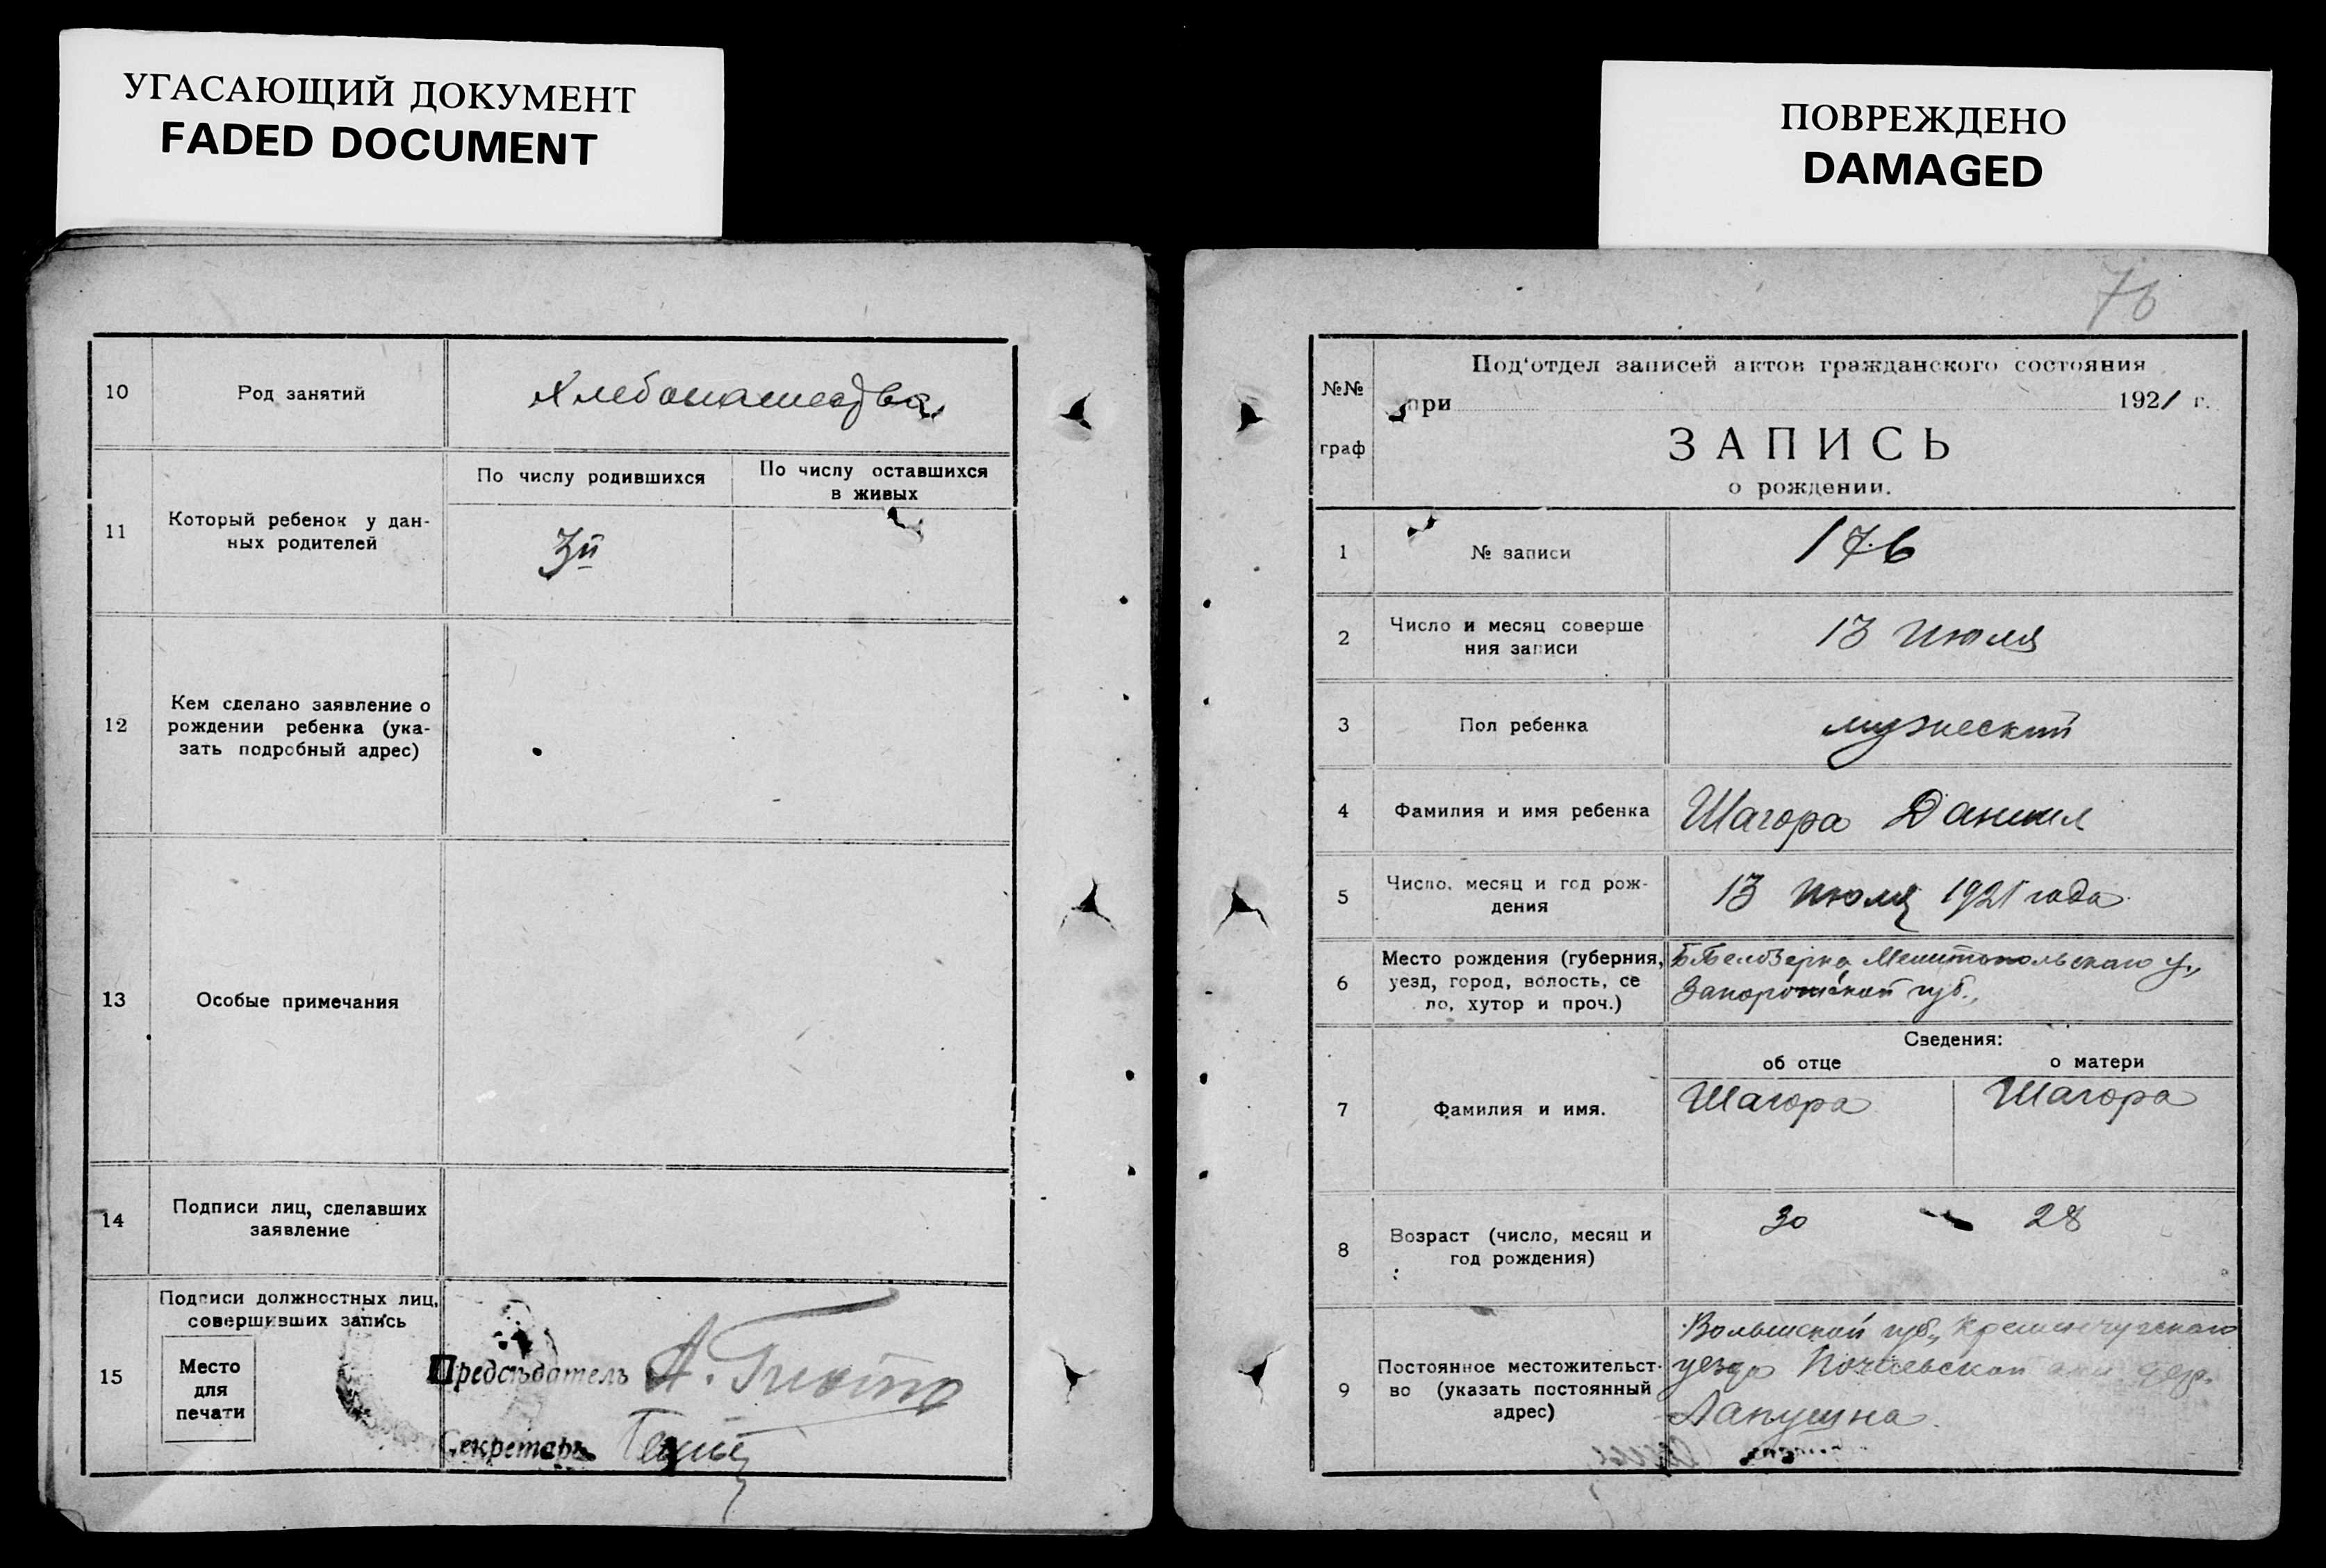 УГАСАЮЩИЙ ДОКУМЕНТ
FADED DOCUMENT
ПОВРЕЖДЕНО
DAMAGED
10
Род занятий
Хлебопашество
11
Который ребенок у дан-
ных родителей
По числу родившихся
По числу оставшихся
в живых
3й
12
Кем сделано заявление о
рождении ребенка (ука-
зать подробный адрес)
13
Особые примечания
14
Подписи лиц, сделавших
заявление
15
Подписи должностных лиц,
совершивших запись
Место
для
печати
Предсѣдатель А.
Секретарь
76
№№
граф
Под‘отдел записей актов гражданского состояния
при 1921 г.
ЗАПИСЬ
о рождении.
1
№ записи
176
2
Число и месяц соверше
ния записи
13 Июля
3
Пол ребенка
мужеский
4
Фамилия и имя ребенка
Шагора Даниил
5
Число, месяц и год рож-
дения
13 Июля 1921 года
6
Место рождения (губерния,
уезд, город, волость, се
ло, хутор и проч.)
Б Белозерка Мелитопольского у.,
Запорожской губ.,
7
Фамилия и имя.
Сведения:
об отце
о матери
Шагора
Шагора
8
Возраст (число, месяц и
год рождения)
30
28
9
Постоянное местожительст-
во (указать постоянный
адрес)
Волынской губ., Кременчугского
уезда Почаевской дер.
Лапушна